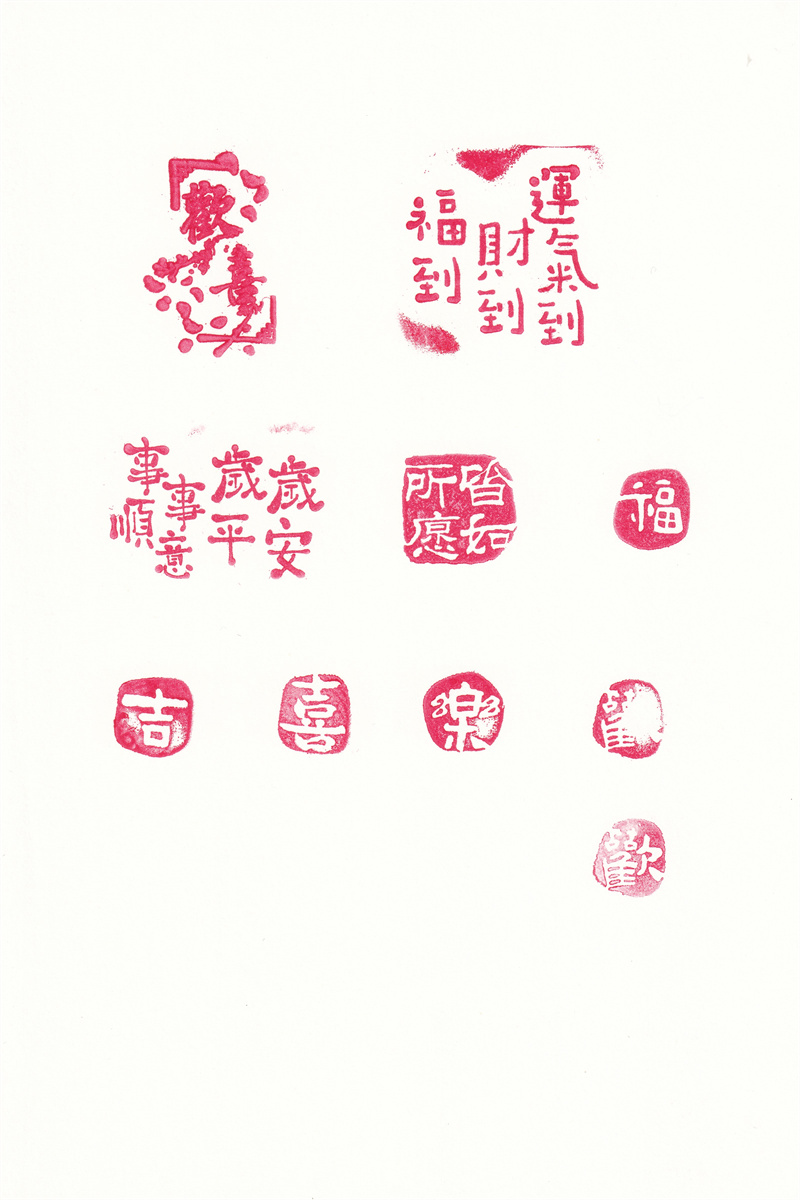 歡喜
運氣到
財到
福到
事事
順意
歲歲
平安
所愿
皆如
福
吉
喜
樂
歡